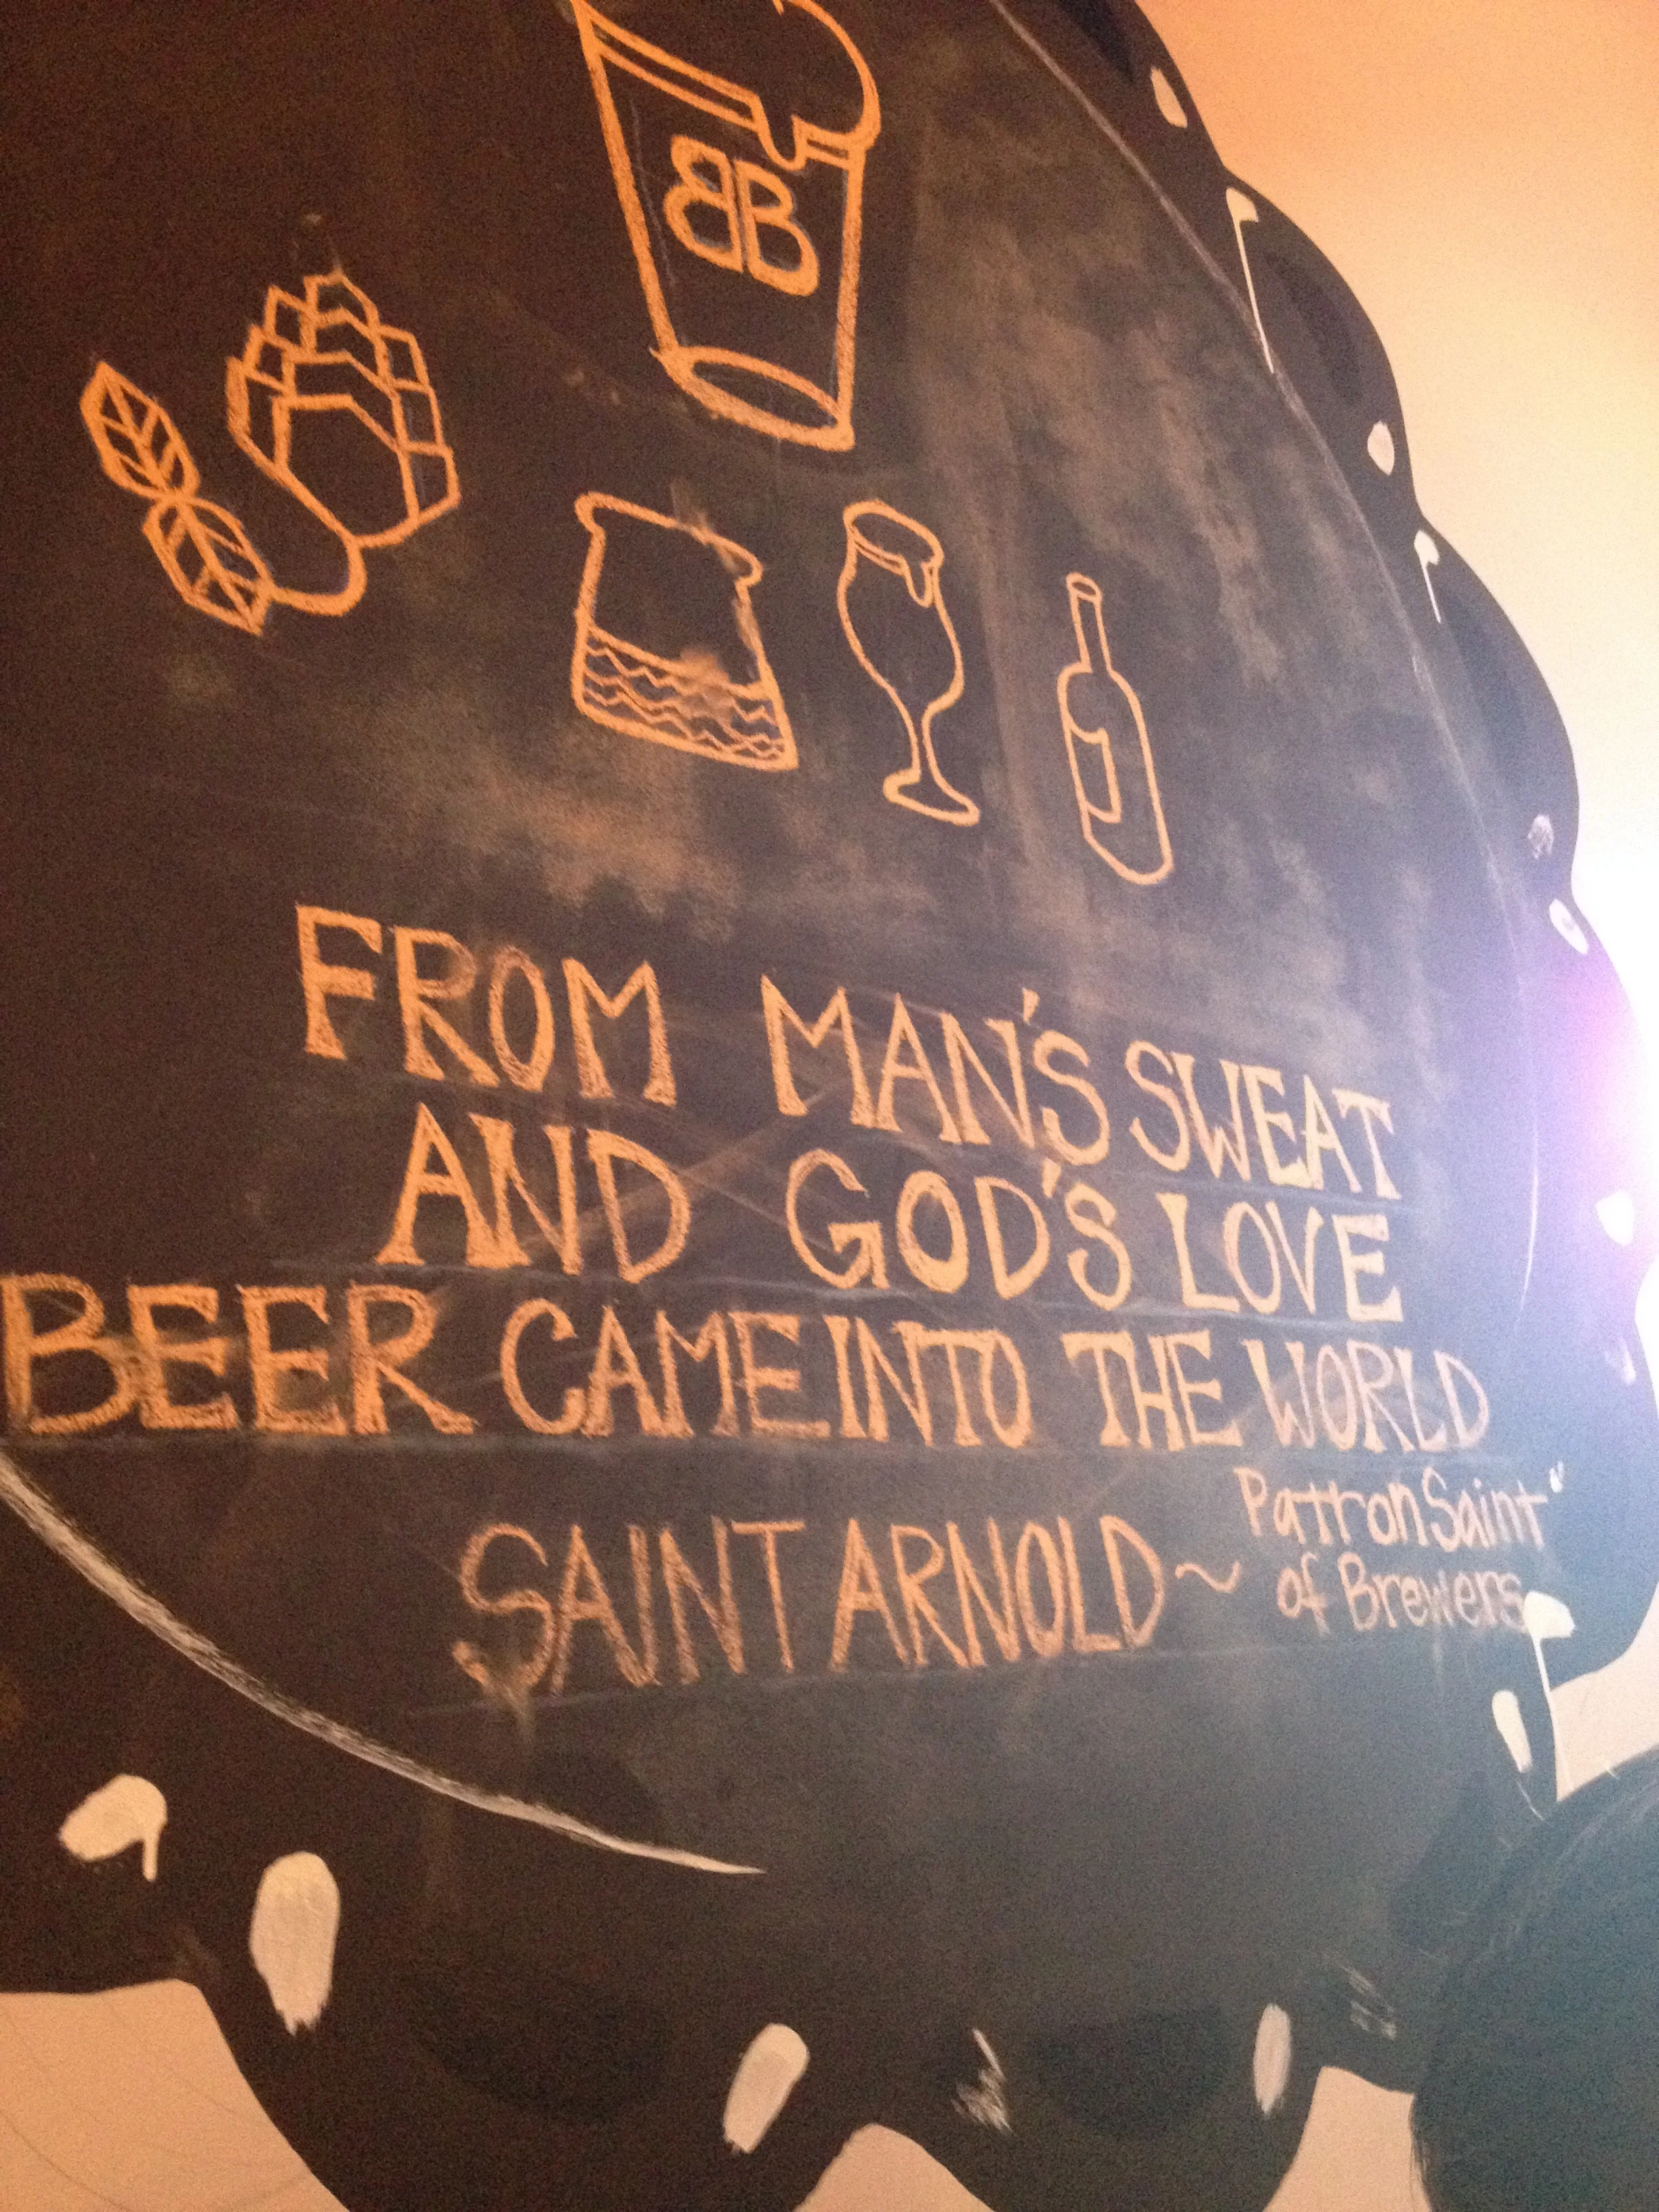 BB
FROM MAN'S SWEAT
AND GOD'S LOVE
BEER CAME INTO THE WORLD
SAINT ARNOLD ~ Patron Saint
of Brewers